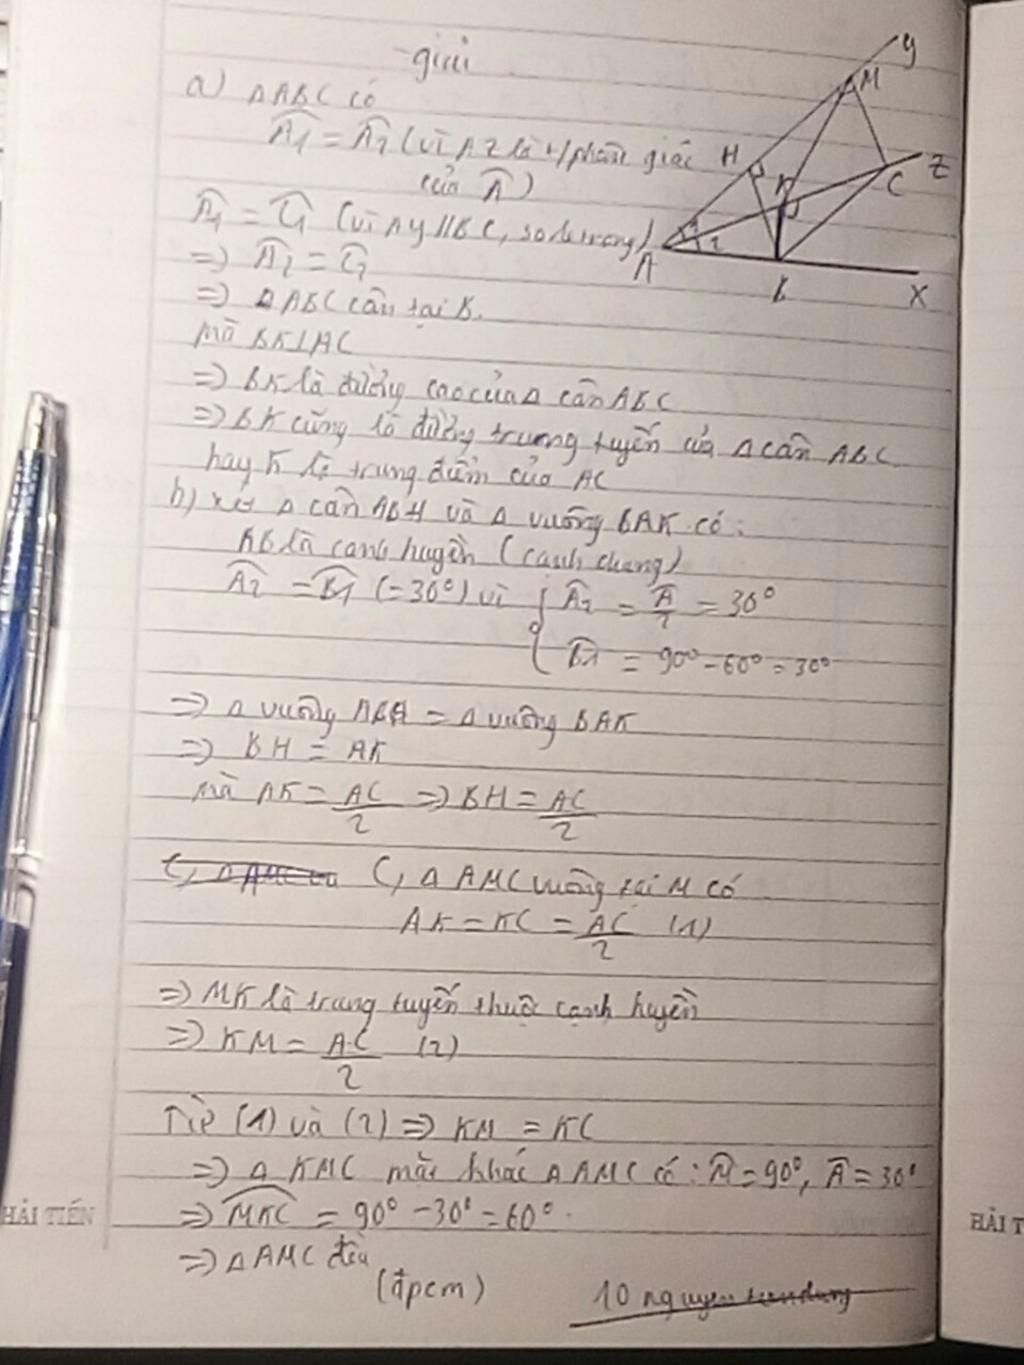 giải
a) ΔABC có
Â1 = Â2 (vì AZ là t/phân giác
của Â)
Â1 = Ĉ1 (vì Ay // BC, so le trong)
=> Â2 = Ĉ1
=> ΔABC cân tại B.
mà BK⊥AC
=> BK là đường cao của Δ cân ABC
=> BK cũng là đường trung tuyến của Δ cân ABC
hay K là trung điểm của AC
b) xét Δ cân ABH và Δ vuông BAK có:
AB là cạnh huyền (cạnh chung)
Â2 = B̂1 (= 30°) vì { Â2 = Â/2 = 30°
B̂1 = 90° - 60° = 30°
=> Δ vuông ABH = Δ vuông BAK
=> BH = AK
mà AK = AC/2 => BH = AC/2
C, Δ AMC vuông tại M có
AK = KC = AC/2 (1)
=> MK là trung tuyến thuộc cạnh huyền
=> KM = AC/2 (2)
Từ (1) và (2) => KM = KC
=> Δ KMC mặc khác Δ AMC có: M̂ = 90°, Â = 30°
=> MKC = 90° - 30° = 60°.
=> Δ AMC đều
(đpcm)
10 nguyen
y
M
H
Z
K
C
1
2
A
B
X
HẢI TIẾN
HẢI T